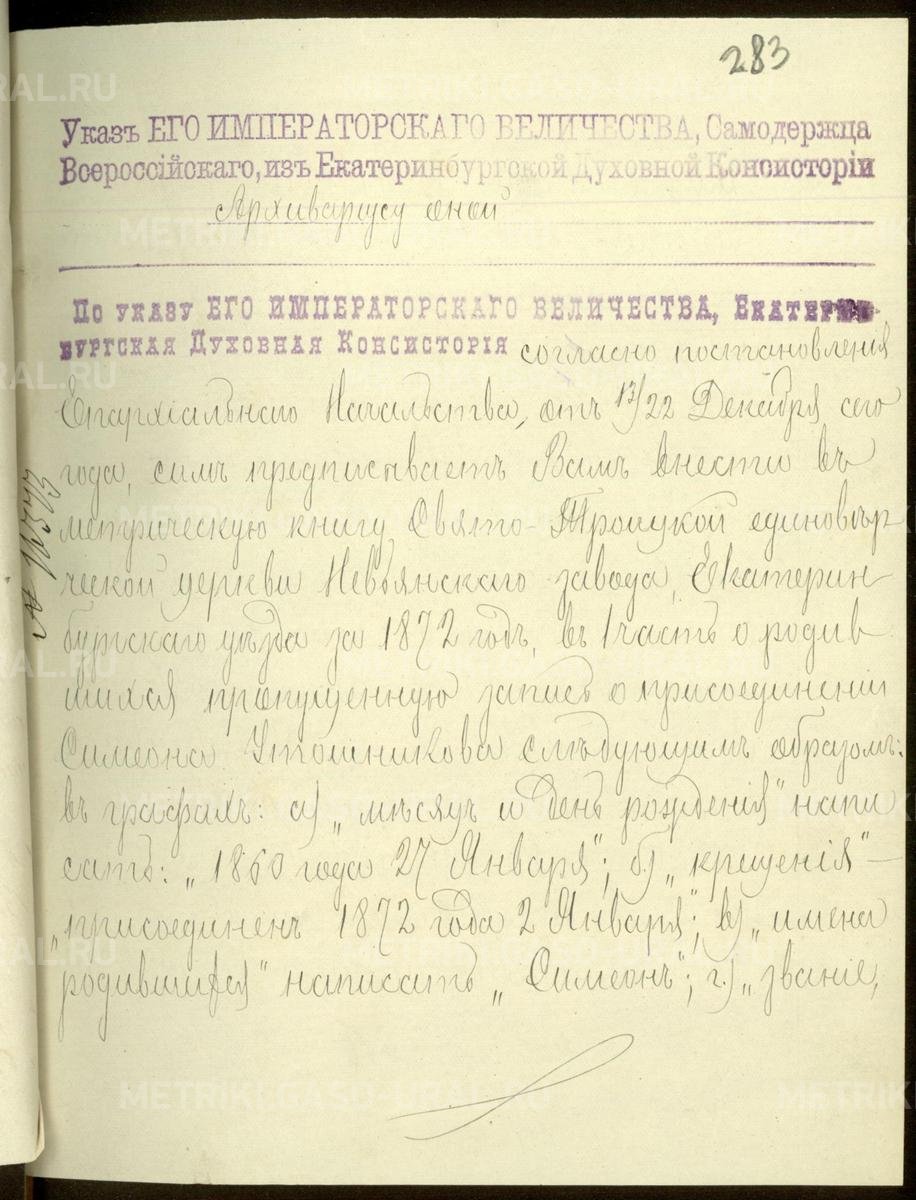 283
Указъ ЕГО ИМПЕРАТОРСКАГО ВЕЛИЧЕСТВА, Самодержца
Всероссійскаго, изъ Екатеринбургской Духовной Консисторіи
Архиваріусу оной
По указу ЕГО ИМПЕРАТОРСКАГО ВЕЛИЧЕСТВА, Екатерин-
бургская Духовная Консисторія согласно постановленія
Епархіальнаго Начальства, отъ 13/22 Декабря сего
года, симъ предписываетъ Вамъ внести въ
метрическую книгу Свято-Троицкой единовѣр
ческой церкви Невьянскаго завода, Екатерин
бургскаго уѣзда за 1872 годъ, въ 1 часть о родив
шихся пропущенную запись о присоединеніи
Симеона Утошникова слѣдующимъ образомъ:
въ графахъ: а) „мѣсяцъ и день рожденія" напи
сать: „1860 года 27 Января"; б) „крещенія" —
„присоединенъ 1872 года 2 Января"; в) „имена
родившихся" написать „Симеонъ"; г) „званіе,
№ 16573
METRIKI.GASO-URAL.RU